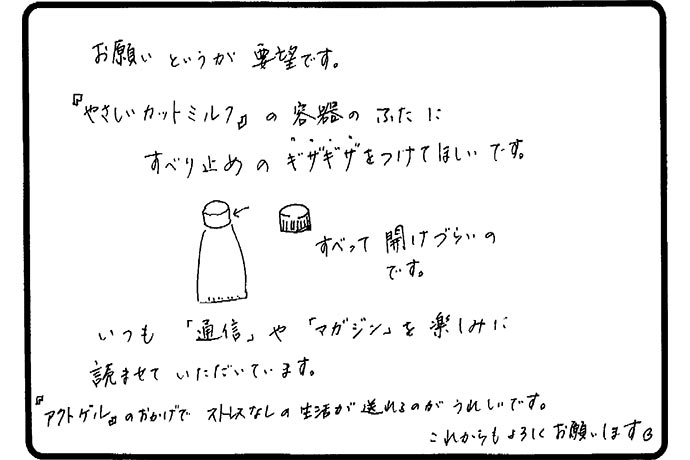 お願いというが要望です。
『やさしいカットミルク』の容器のふたに
すべり止めのギザギザをつけてほしいです。
すべって開けづらいの
です。
いつも「通信」や「マガジン」を楽しみに
読ませていただいています。
『アクトゲル』のおかげでストレスなしの生活が送れるのがうれしいです。
これからもよろしくお願いします